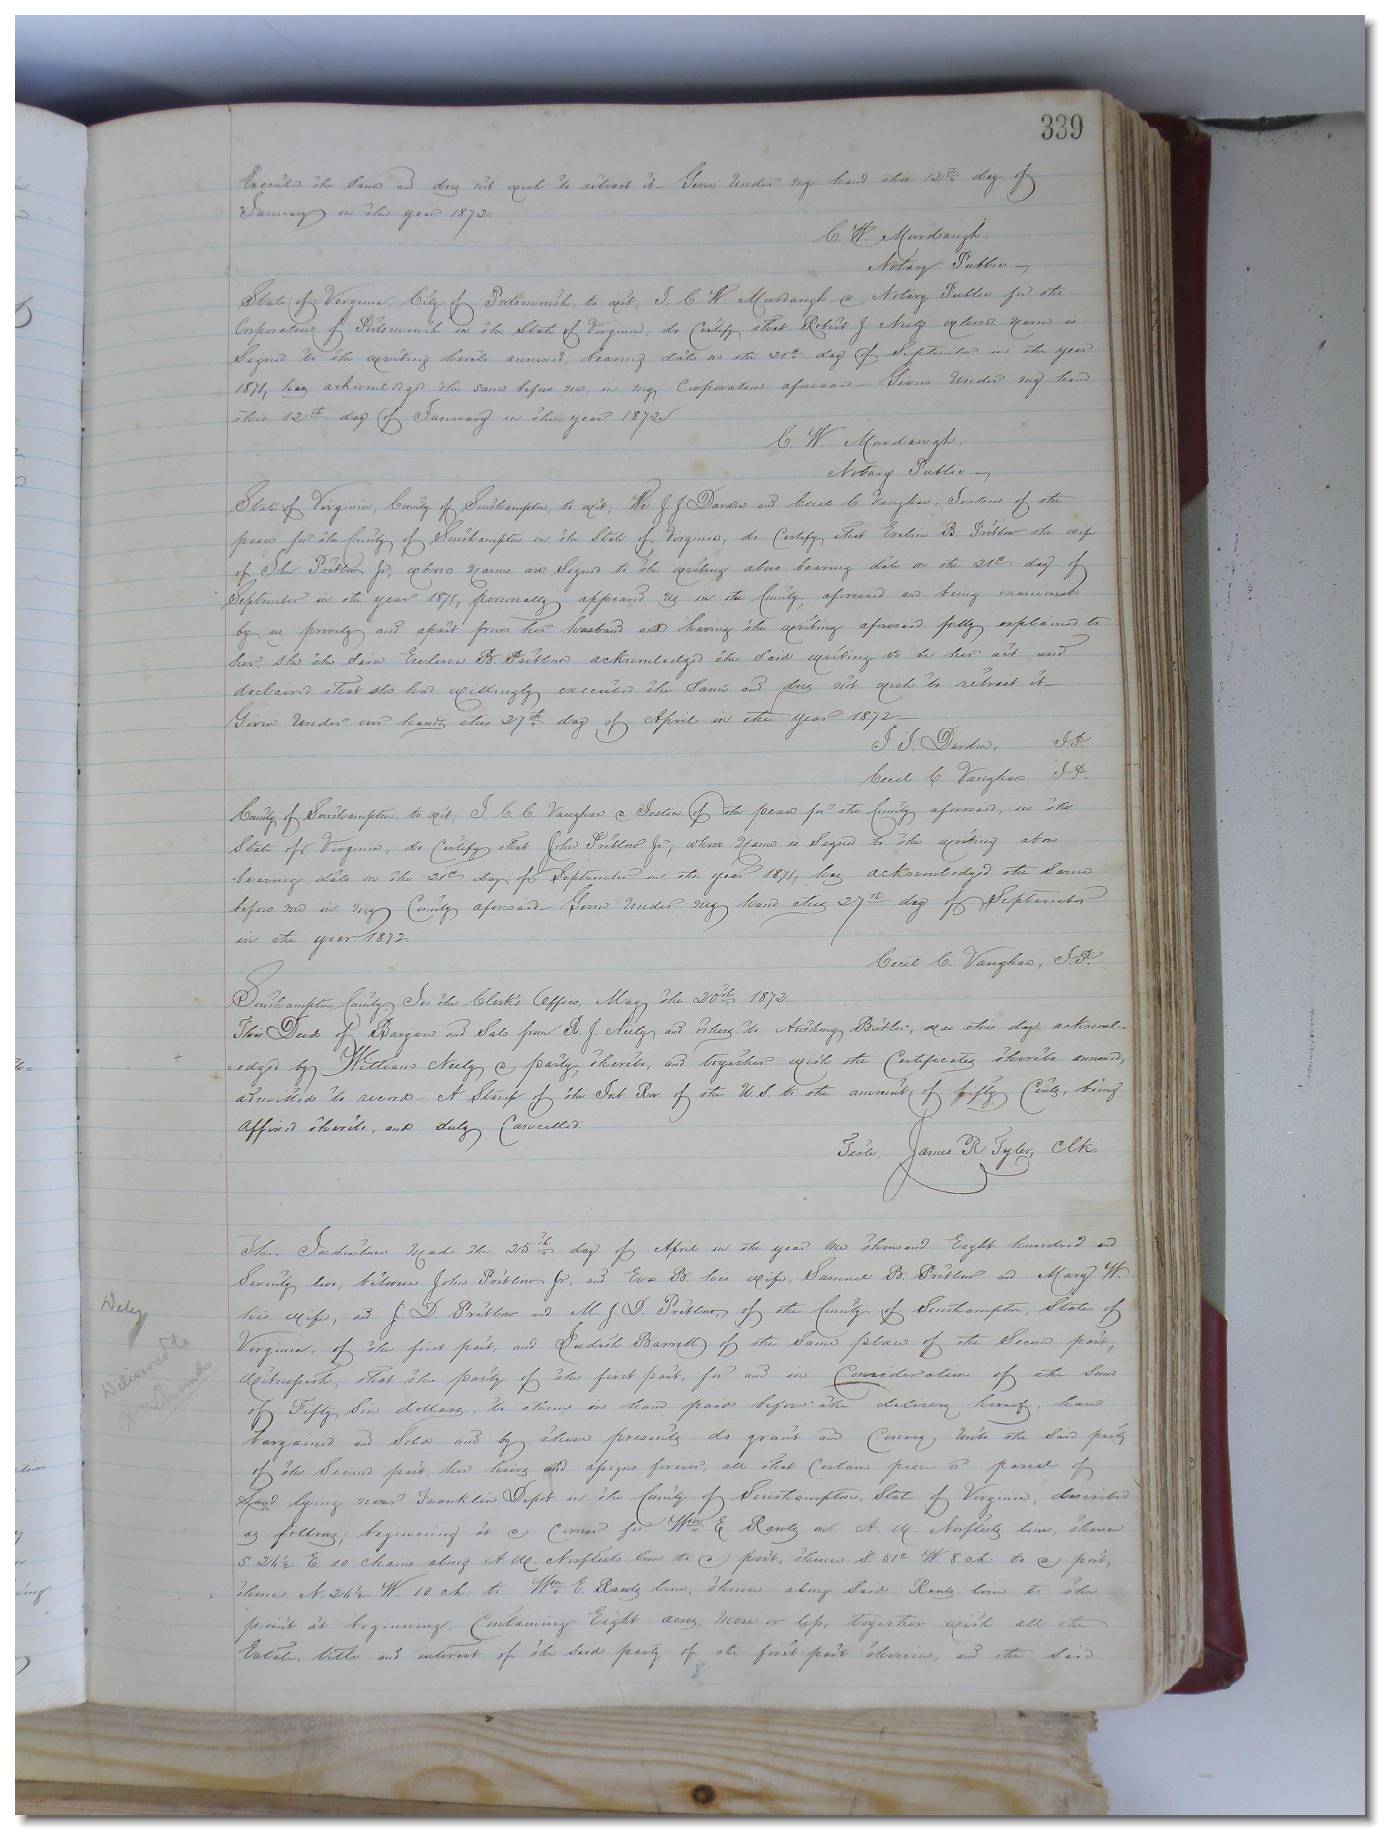 339
Executed the same and does not wish to retract it – Given under my hand this 12th day of
January in the year 1872.
C. W. Murdaugh
Notary Public –
State of Virginia, City of Portsmouth, to wit, I, C. W. Murdaugh, a Notary Public for the
Corporation of Portsmouth in the State of Virginia, do Certify that Robert J. Neely whose name is
Signed to the writing hereto annexed, bearing date on the 21st day of September in the year
1871, has acknowledged the same before me, in my Corporation aforesaid – Given under my hand
this 12th day of January in the year 1872
C. W. Murdaugh,
Notary Public –
State of Virginia, County of Southampton, to wit; We J. J. Darden and Cecil C. Vaughan, Justices of the
peace for the County of Southampton in the State of Virginia, do Certify that B. Pretlow the wife
of John Pretlow Jr, whose names are Signed to the writing above bearing date on the 21st day of
September in the year 1871, personally appeared us in the County aforesaid and being examined
by us privily and apart from her husband and having the writing aforesaid fully explained to
her, she the said B. Pretlow acknowledged the said writing to be her act and
declared that she had willingly executed the same and does not wish to retract it –
Given under our hands this 27th day of April in the year 1872 –
J. J. Darden, J.P.
Cecil C. Vaughan J.P.
County of Southampton, to wit, I, C. C. Vaughan a Justice of the peace for the County aforesaid, in the
State of Virginia, do Certify that John Pretlow Jr, whose name is Signed to the writing above
bearing date on the 21st day of September in the year 1871, has acknowledged the same
before me in my County aforesaid – Given under my hand this 27th day of September
in the year 1872.
Cecil C. Vaughan, J.P.
Southampton County, In the Clerk's Office, May the 20th 1872
This Deed of Bargain and Sale from R. J. Neely and others to Anthony Butler, was this day acknowl-
-edged by William Neely a party thereto, and together with the Certificates thereto annexed,
admitted to record – A Stamp of the Int. Rev. of the U.S. to the amount of fifty Cents, being
affixed thereto, and duly Cancelled.
Teste, James R Tyler, Clk.
This Indenture made the 25th day of April in the year one thousand Eight hundred and
Seventy two, between John Pretlow Jr, and Eva B. his wife, Samuel B. Pretlow and Mary W.
his wife, and J. D. Pretlow and M. J. D. Pretlow, of the County of Southampton, State of
Virginia, of the first part, and Judith Barrett of the same place of the Second part;
Witnesseth, that the party of the first part, for and in Consideration of the Sum
of Fifty Six dollars, to them in hand paid before the delivery hereof, have
bargained and Sold and by these presents do grant and Convey unto the said party
of the Second part, her heirs and assigns forever, all that Certain piece or parcel of
Land lying near Franklin Depot in the County of Southampton, State of Virginia, described
as follows, beginning at a Corner for Wm E. Rawls on A. M. Norfleets line, thence
S. 24½ E. 10 chains along A. M. Norfleets line to a post, thence S. 51° W. 8 ch. to a post,
thence N. 24½ W. 10 ch. to Wm E. Rawls line, thence along said Rawls line to the
point at beginning, Containing Eight acres, more or less, together with all the
Estate, title and interest of the said party of the first part therein, and the said
Dely
Delivered to